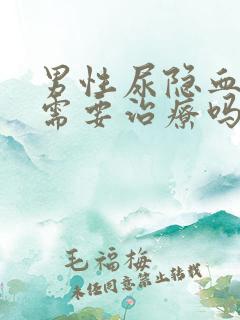 男性尿隐血
需要治疗吗
毛福梅
未经同意禁止转载